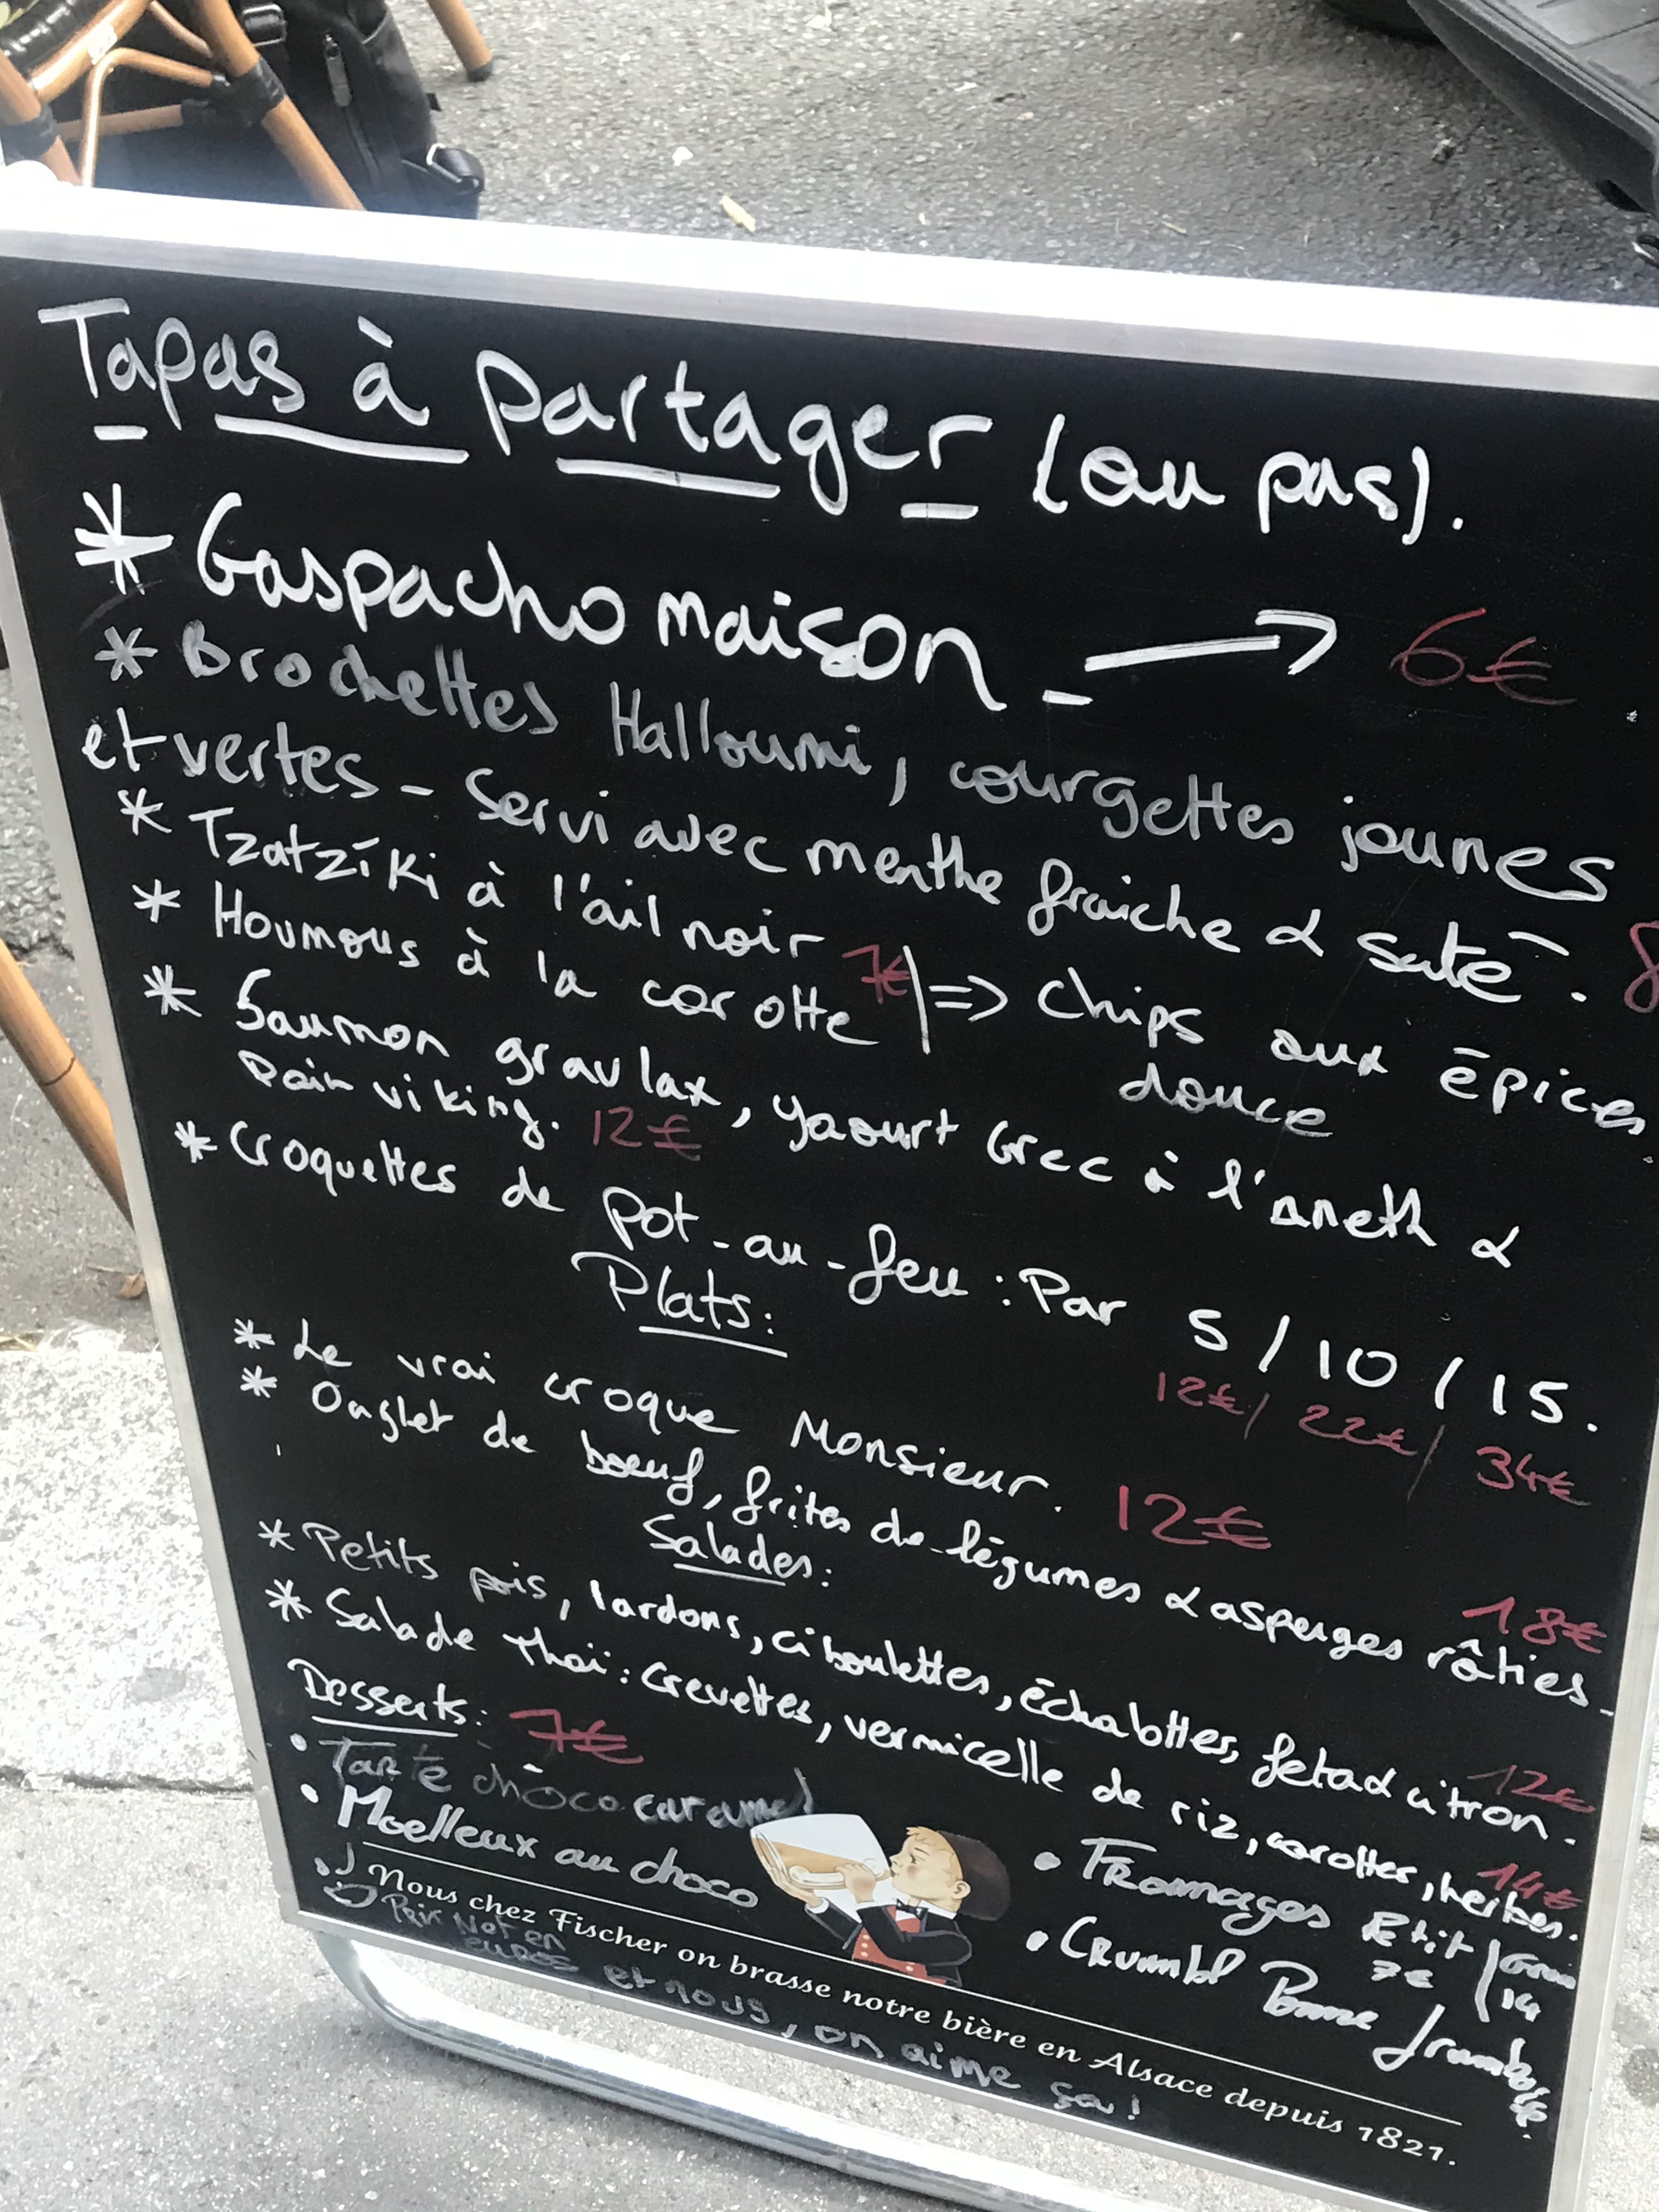 Tapas à partager (ou pas).
* Gaspacho maison_ → 6€
* Brochettes Halloumi, courgettes jaunes
et vertes - Servi avec menthe fraiche & saté. 8
* Tzatziki à l'ail noir
* Houmous à la carotte 7€ | => Chips aux épices
douce
* Saumon gravlax, yaourt Grec à l'aneth &
Pain viking. 12€
* Croquettes de pot-au-feu : Par 5 / 10 / 15.
12€ / 22€ / 34€
Plats:
* Le vrai croque Monsieur. 12€
* Onglet de boeuf, frites de légumes & asperges râties. 18€
Salades:
* Petits pois, lardons, ciboulettes, échalottes, feta & citron. 12€
* Salade Thai : Crevettes, vermicelle de riz, carottes, herbes. 14€
Desserts: 7€
• Tarte choco caramel
• Moelleux au choco
• Fromages Petit / Gran
7€ / 14
• Crumbl Pomme framboise
Nous chez Fischer on brasse notre bière en Alsace depuis 1821.
Prix Net en
euros et nous, on aime ça!